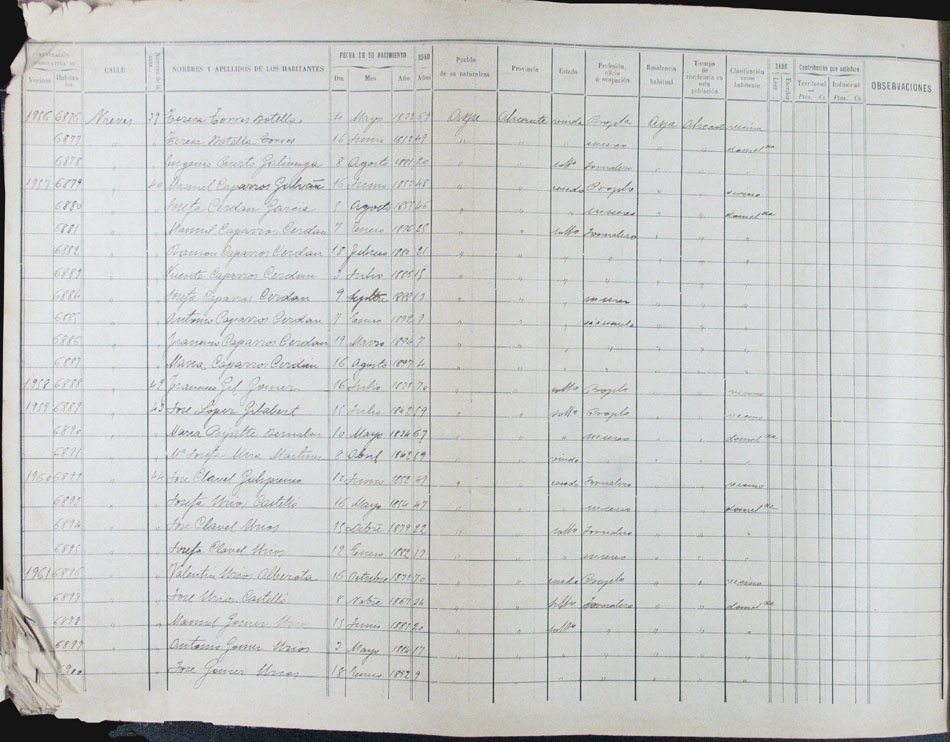 NUMERACIÓN CORRELATIVA DE
Vecinos Habitantes CALLE NOMBRES Y APELLIDOS DE LOS HABITANTES
FECHA DE SU NACIMIENTO Día Mes Año EDAD Años
Pueblo de su naturaleza Provincia Estado Profesión, oficio ú ocupación Residencia habitual Tiempo de residencia en esta población Clasificación como habitante
SABE Leer Escribir Contribución que satisface Territorial Ptas. Cs. Industrial Ptas. Cs. OBSERVACIONES
1956 6876 Nieves 39 Teresa Torres Botella 4 Mayo Aspe Alicante viuda Propta Aspe Alicante vecina
6877 " " Teresa Botella Torres 16 Junio 49 " " sus cas domcda
6878 " " Eugenio 8 Agosto 1881 20 " " solto Jornalero " "
1957 6879 " 40 Manuel Caparros Galván 16 Junio 1853 48 " " casado Propto " " vecino
6880 " " Josefa Cerdan Garcia 5 Agosto 1855 46 " " " sus cas " " domcda
6881 " " Manuel Caparros Cerdan 7 Enero 1876 25 " " solto Jornalero " " "
6882 " " Ramon Caparros Cerdan 18 Febrero 1880 21 " " " " " " "
6883 " " Vicente Caparros Cerdan Julio 15 " " " " " " "
6884 " " Josefa Caparros Cerdan 9 Sepbre 1888 13 " " " sus cas " " "
6885 " " Antonio Caparros Cerdan 7 Enero 1892 9 " " " escuela " " "
6886 " " Francisco Caparros Cerdan 19 Marzo 1894 7 " " " " " " "
6887 " " Maria Caparros Cerdan 16 Agosto 1897 4 " " " " " " "
1958 6888 " 42 Francisco Gil Gomez 16 Julio 1831 70 " " solto Propto " " vecino
1959 6889 " 43 Jose Lopez Gilabert 15 Julio 1842 59 " " solto Propto " " vecino
6890 " " Maria 10 Mayo 1834 67 " " " sus cas " " domcda
6891 " " Ma Josefa Mira Martinez 8 Abril 1842 59 " " viuda " " " "
1960 6892 " 44 Jose Clavel 12 Junio 1852 49 " " casado Jornalero " " vecino
6893 " " Josefa Urios Castelló 16 Mayo 1854 47 " " " sus cas " " domcda
6894 " " Jose Clavel Urios 15 1879 22 " " solto Jornalero " " "
6895 " " Josefa Clavel Urios 12 Enero 1882 19 " " " sus cas " " "
1961 6896 " " Valentin Urios Alberola 16 Octubre 1831 70 " " casado Propto " " vecino
6897 " " Jose Urios Castelló 8 Nobre 1867 34 " " solto Jornalero " " domcda
6898 " " Manuel Gomez Urios 15 Junio 1881 20 " " solto " " " "
6899 " " Antonio Gomez Urios 3 Mayo 1884 17 " " " " " " "
6900 " " Jose Gomez Urios 18 Enero 1892 9 " " " " " " "